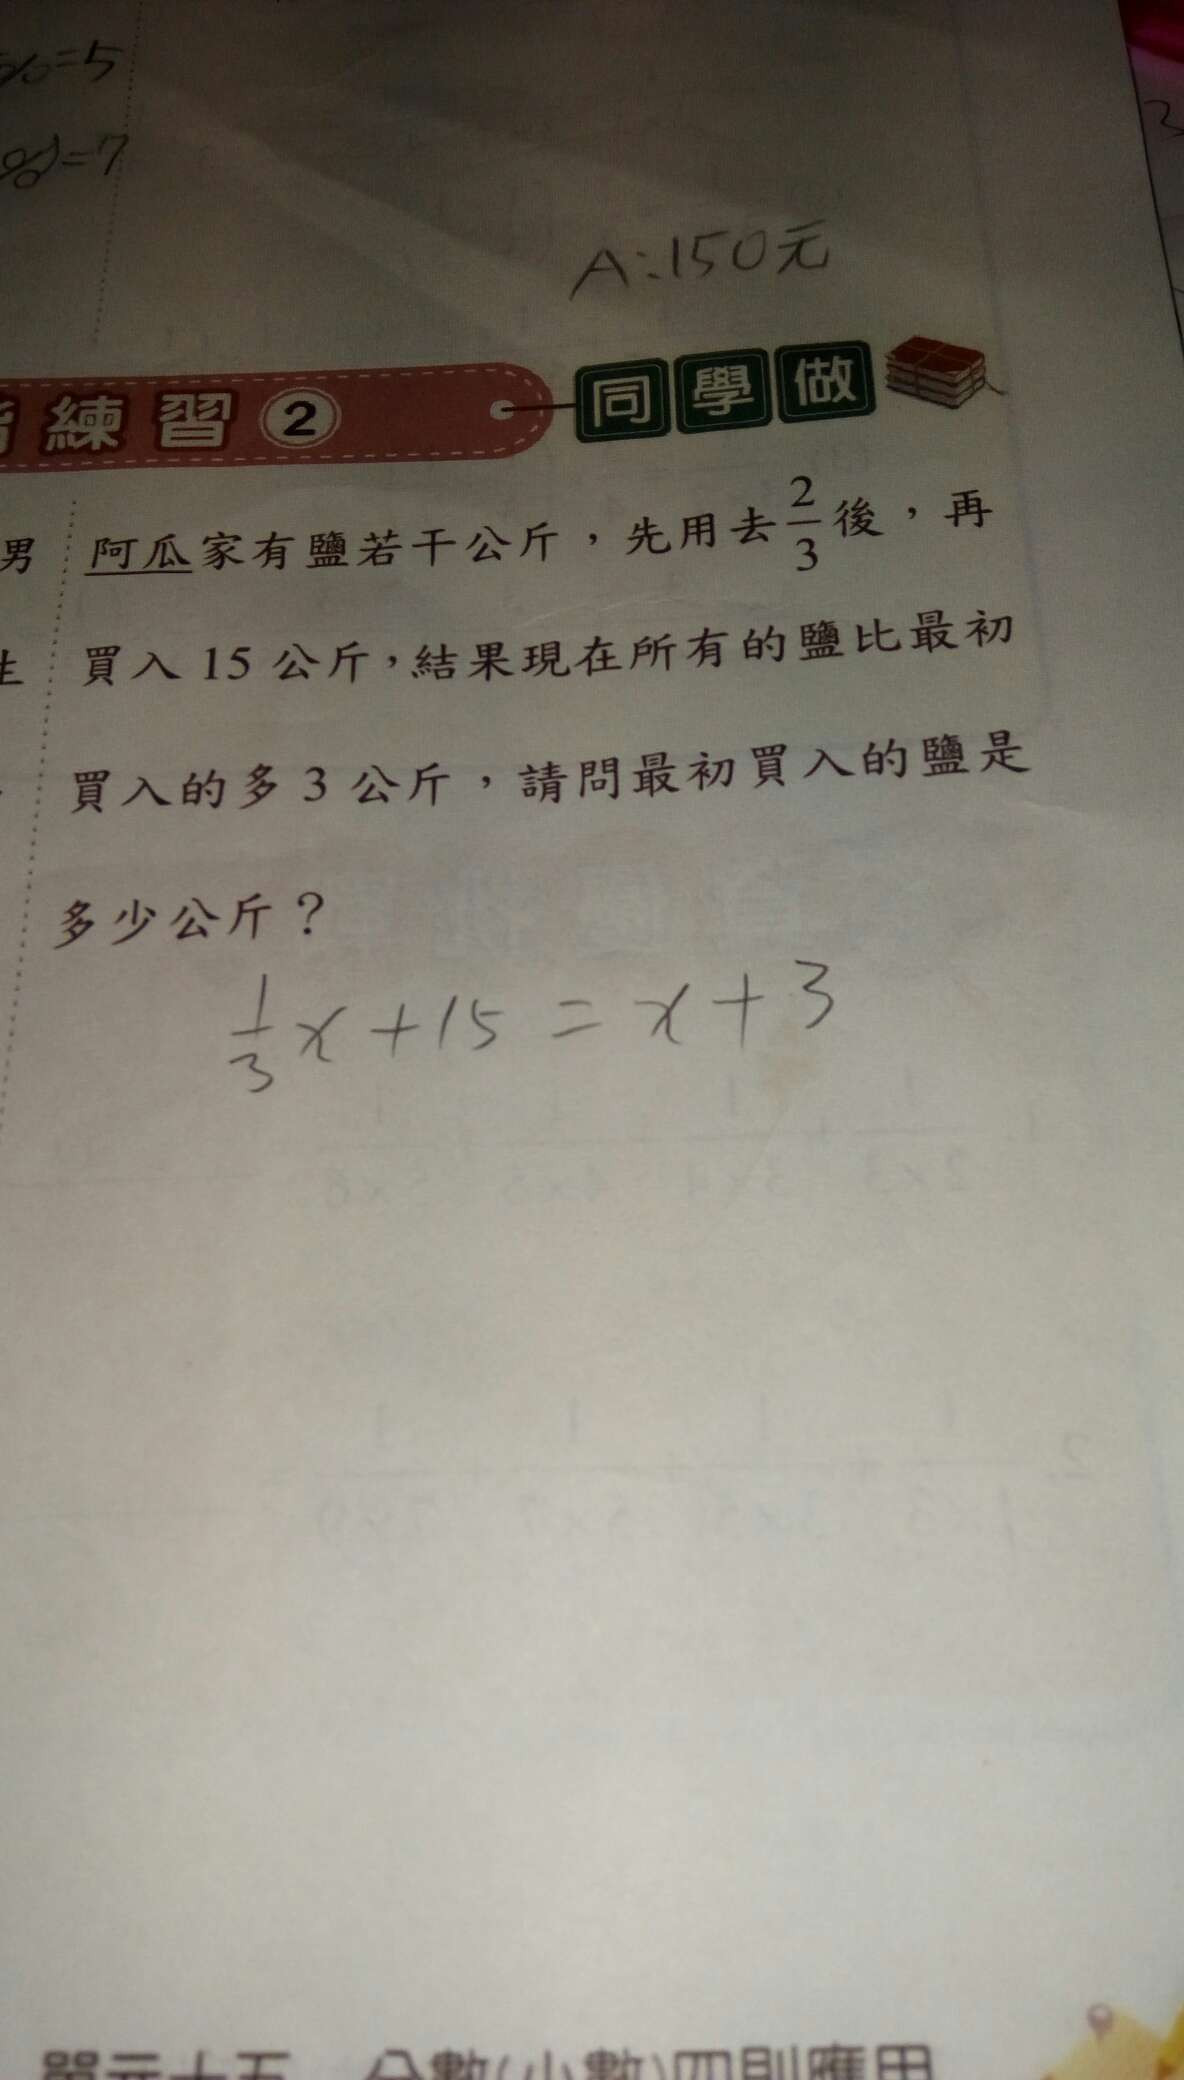 %=5
%)=7
A:150元
練習2 同學做
男
阿瓜家有鹽若干公斤，先用去2/3後，再
生
買入15公斤，結果現在所有的鹽比最初
買入的多3公斤，請問最初買入的鹽是
多少公斤？
1/3x+15=x+3
單元十五 分數(小數)四則應用